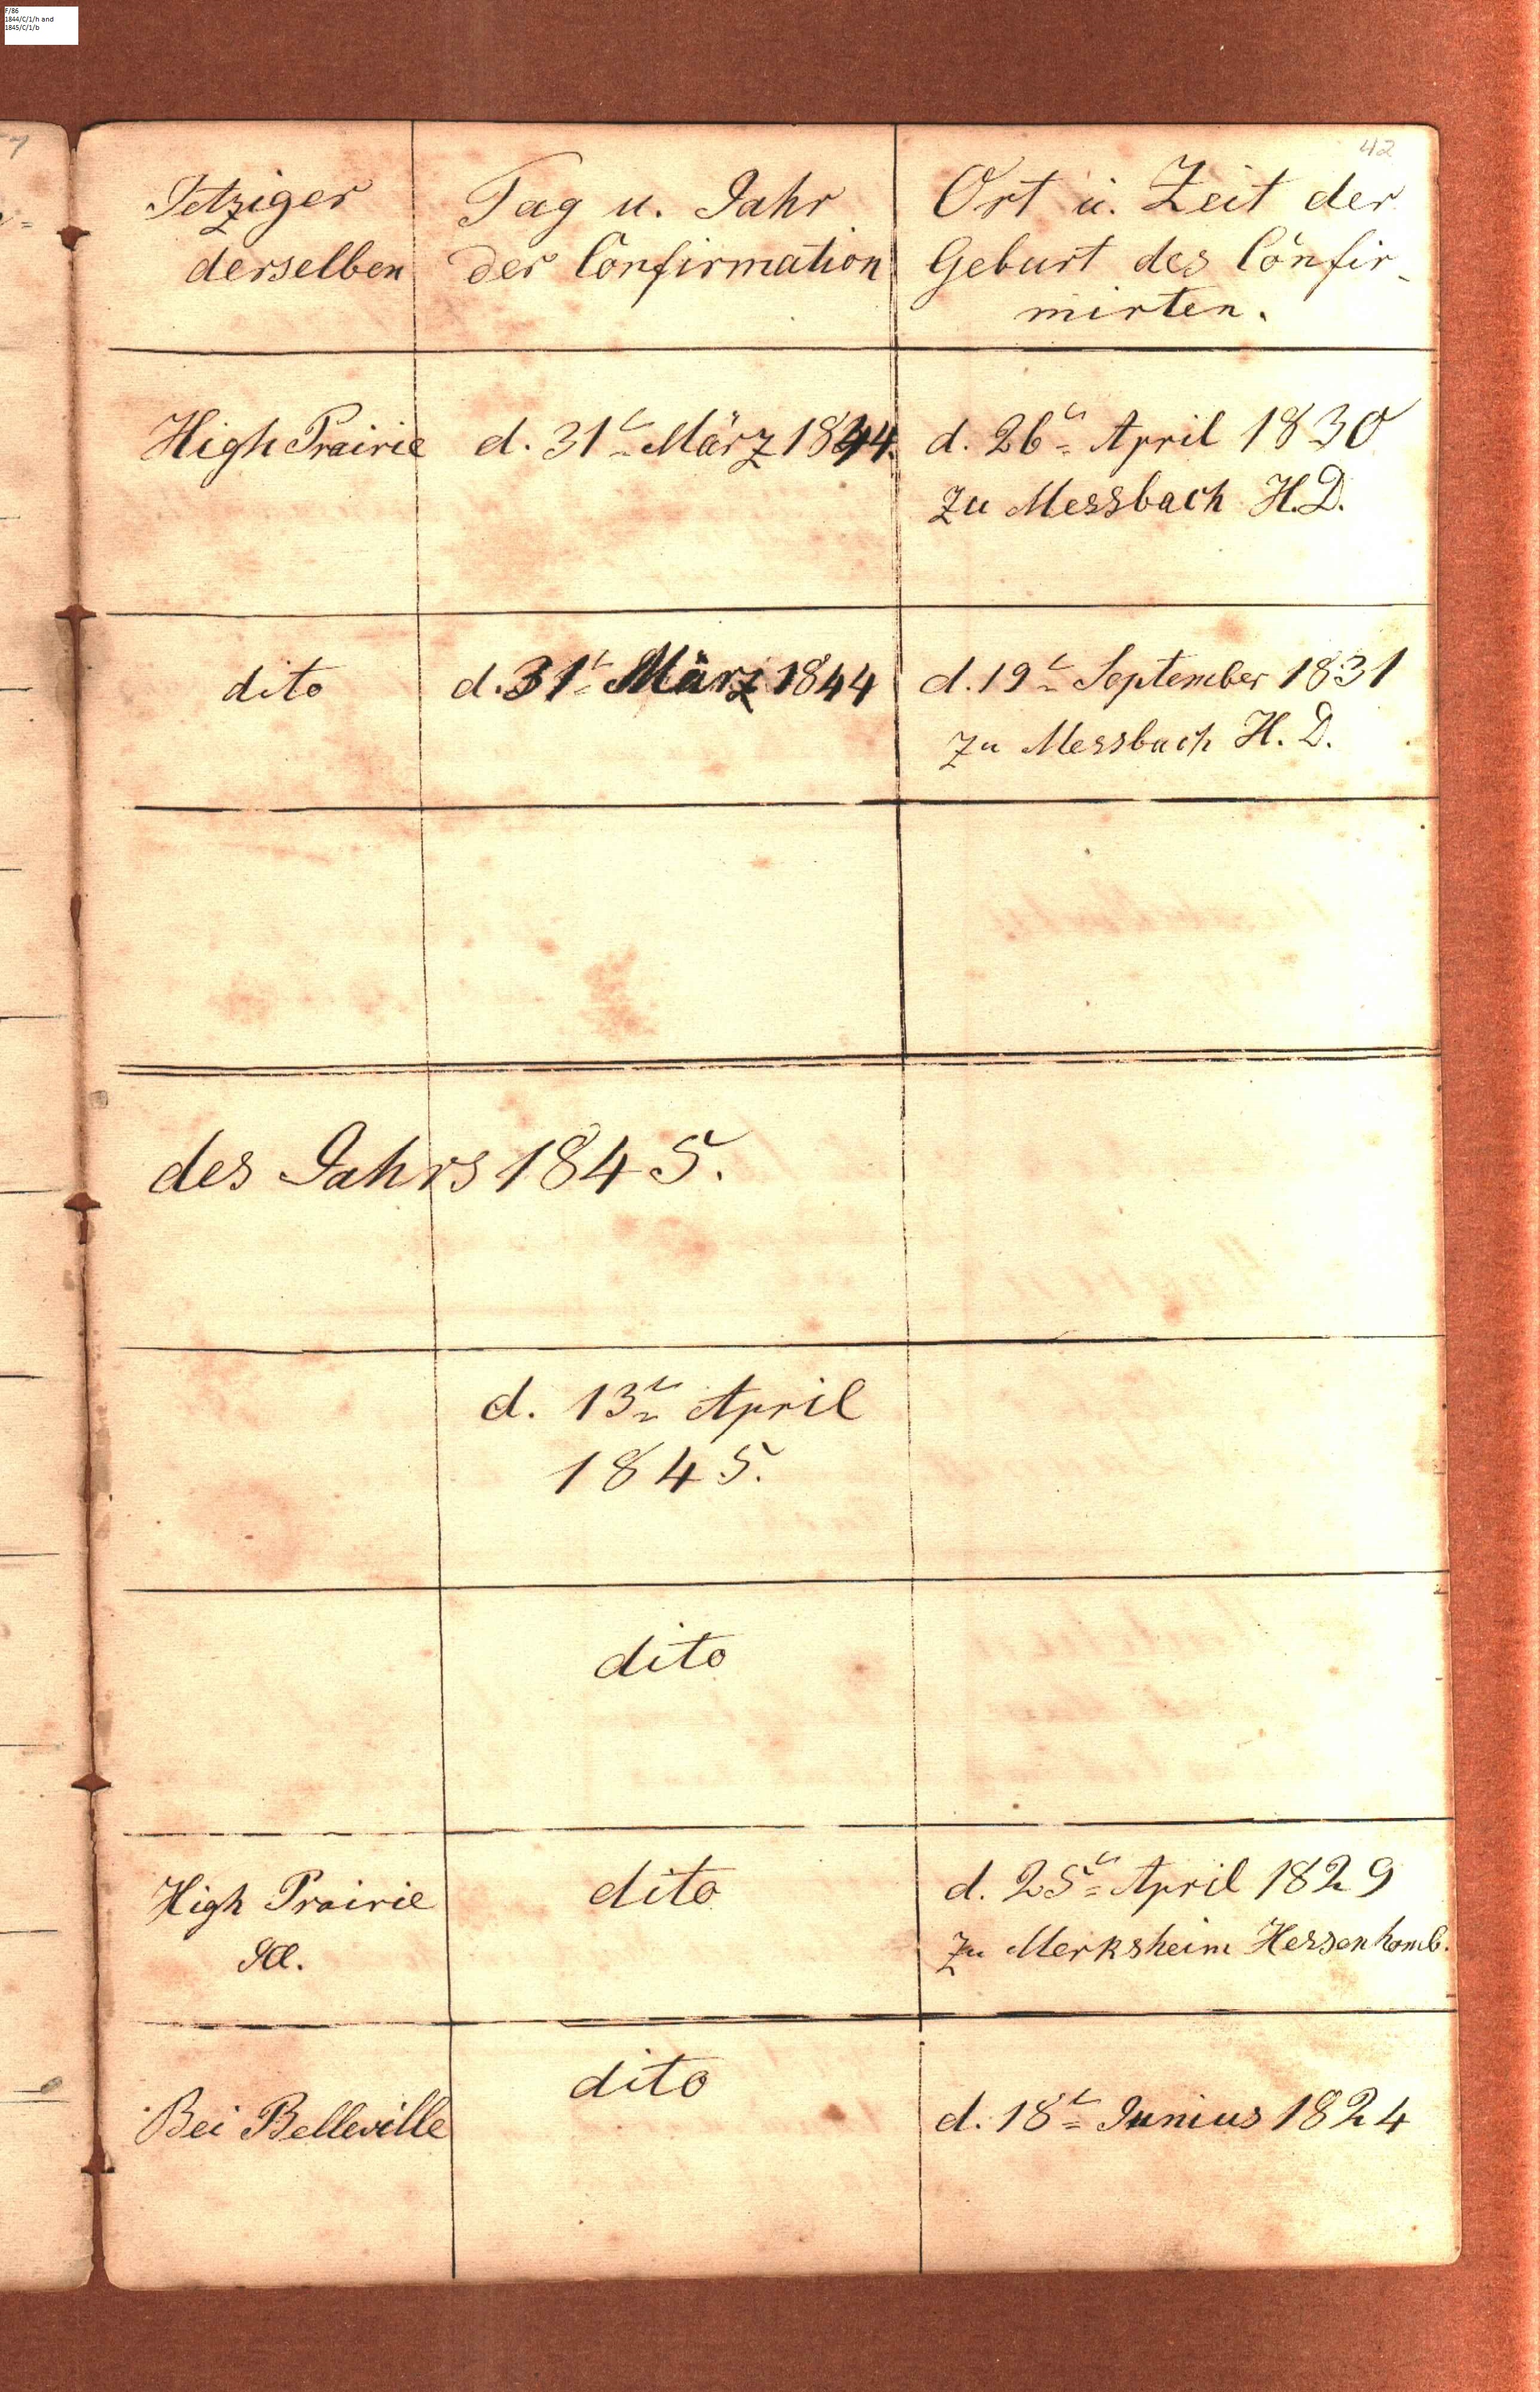 F/86
1844/C/1/h and
1845/C/1/b
42
Jetziger
derselben
Tag u. Jahr
der Confirmation
Ort u. Zeit der
Geburt des Confir-
mirten.
High Prairie
d. 31t März 1844.
d. 26t April 1830
zu Messbach H.D.
dito
d. 31t März 1844
d. 19t September 1831
zu Messbach H. D.
des Jahrs 1845.
d. 13t April
1845.
dito
High Prairie
Ill.
dito
d. 25t April 1829
zu Merksheim Hessenhomb.
Bei Belleville
dito
d. 18t Junius 1824